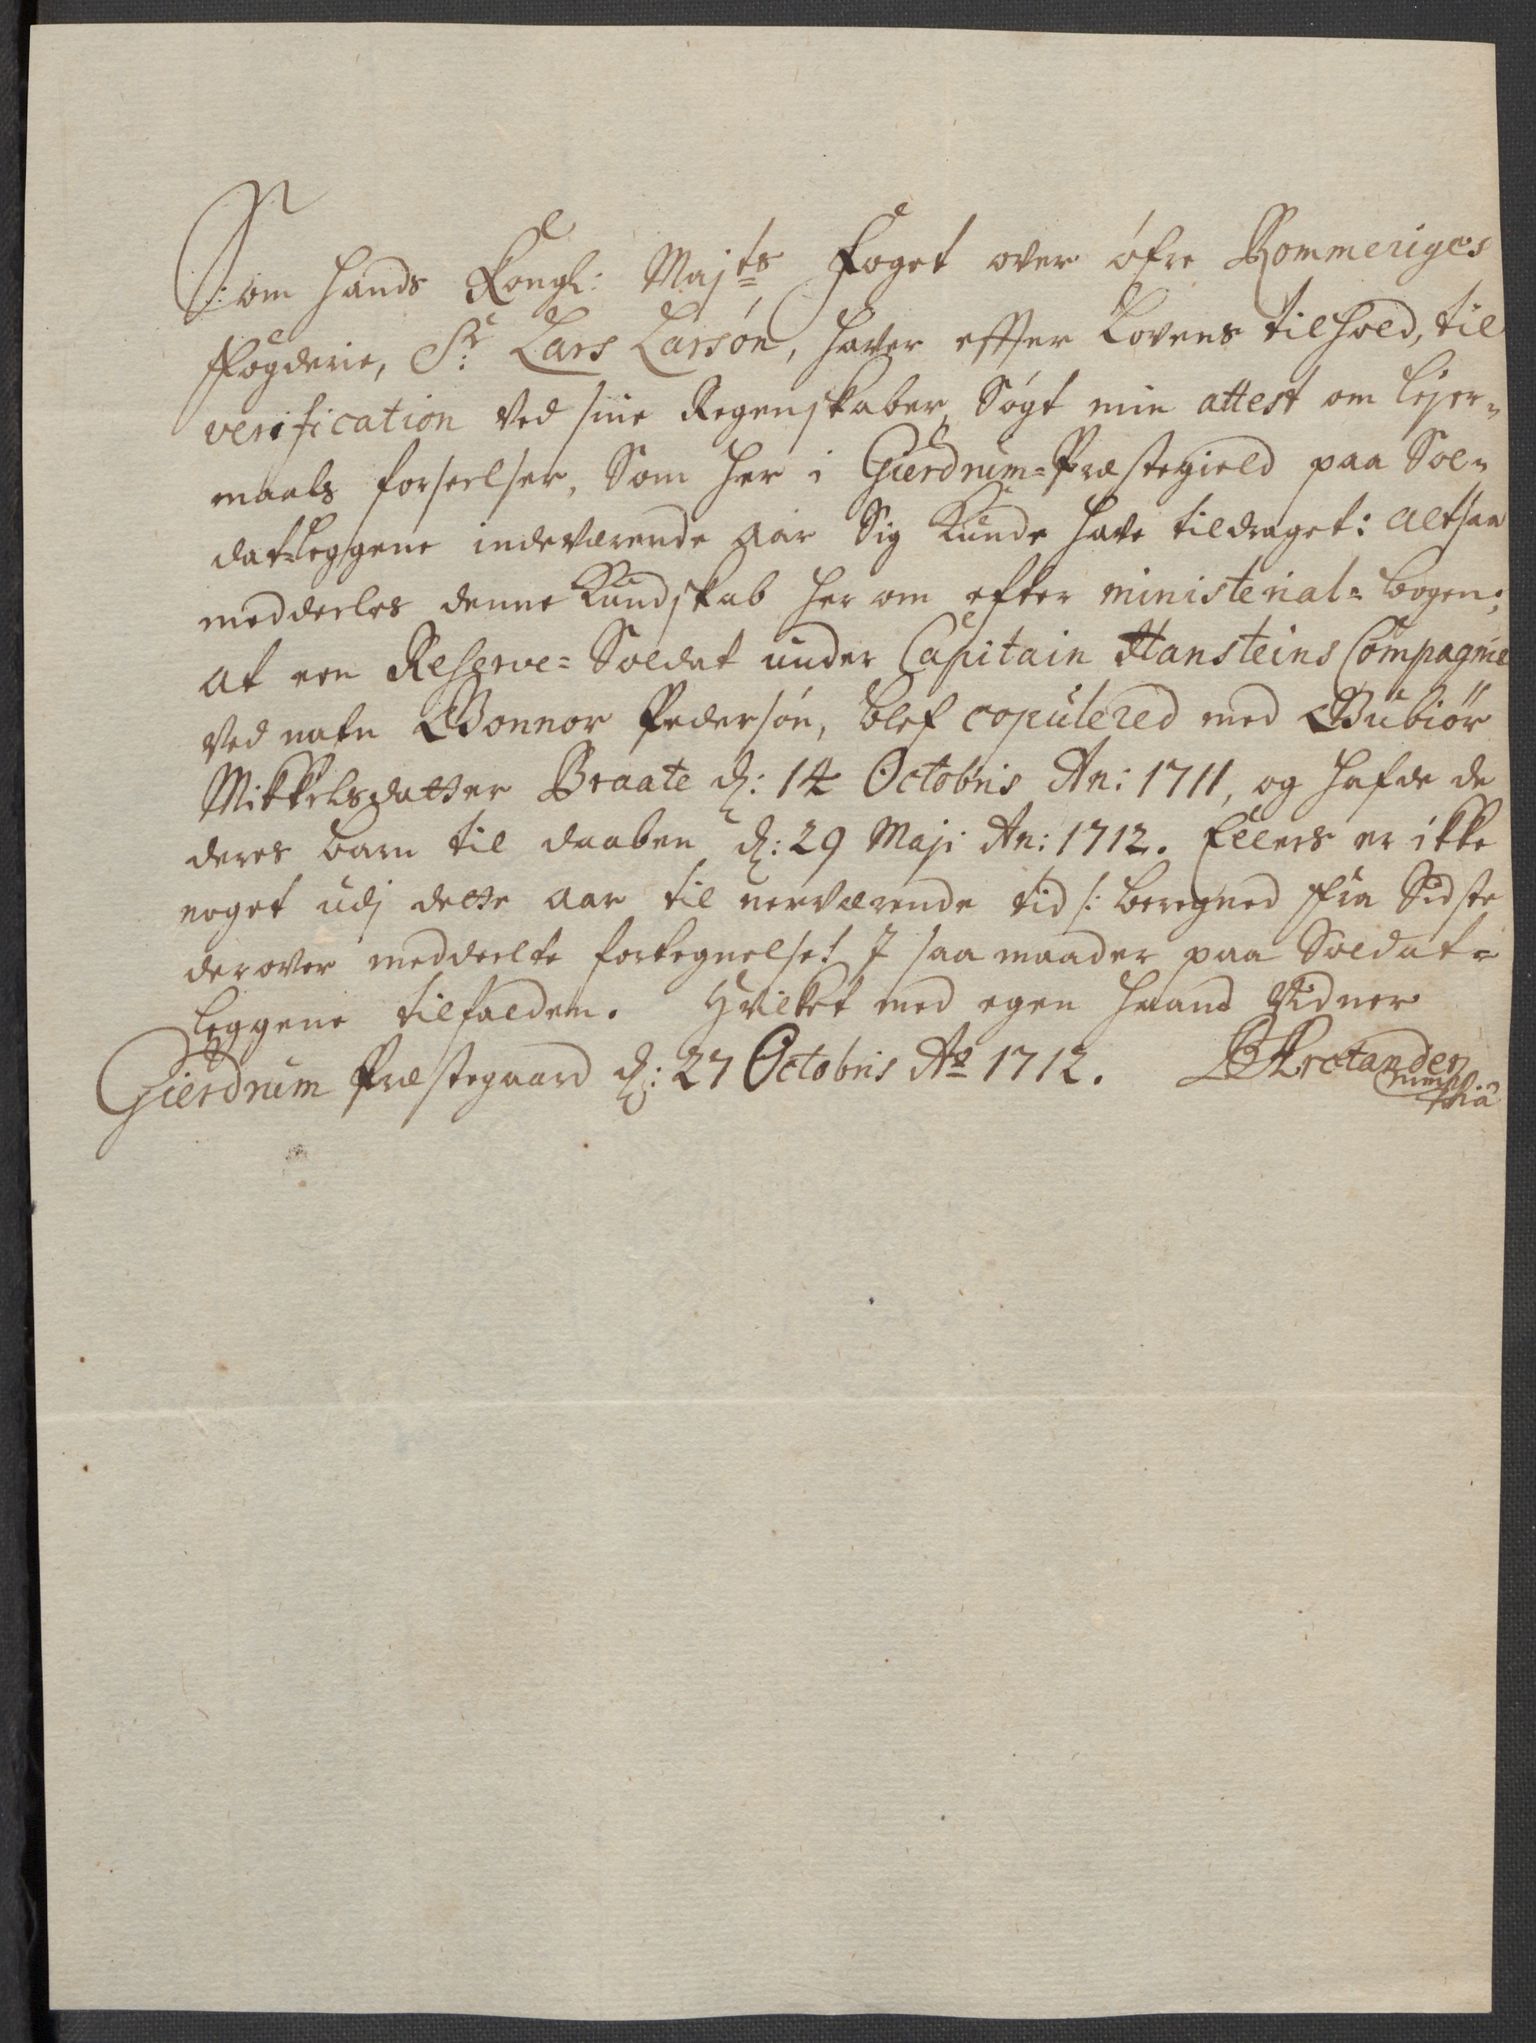 Som hands Kongl: Majts Foget over öfre Rommeriges
Fogderie, Sr: Lars Larsön, haver effter Lovens tilhold, til
verification ved sine Regenskaber, Søgt min attest om lejer=
maals forseelser, Som her i Gierdrum=Præstegield paa Sol=
dat=leggene indeværende aar Sig kunde have tildraget: altsaa
meddeeles denne kundskab her om efter ministerial=bogen;
at een Reserve=Soldat under Capitain Hansteins Compagnie
ved nafn Gonnor Pedersön, blef copulered med Gubiör
Mikkelsdatter Braate d: 14 Octobris An: 1711, og hafde de
deres barn til daaben d: 29 Maji An: 1712. Ellers er ikke
noget udj dette aar til nerværende tid /: beregned fra Sidste
derover meddeelte fortegnelse :/ I saa maader paa Soldat=
leggene tilfalden. Hvilket med egen haand Vidner
Gierdrum Præstegaard d: 27 Octobris Ao 1712. Arctander